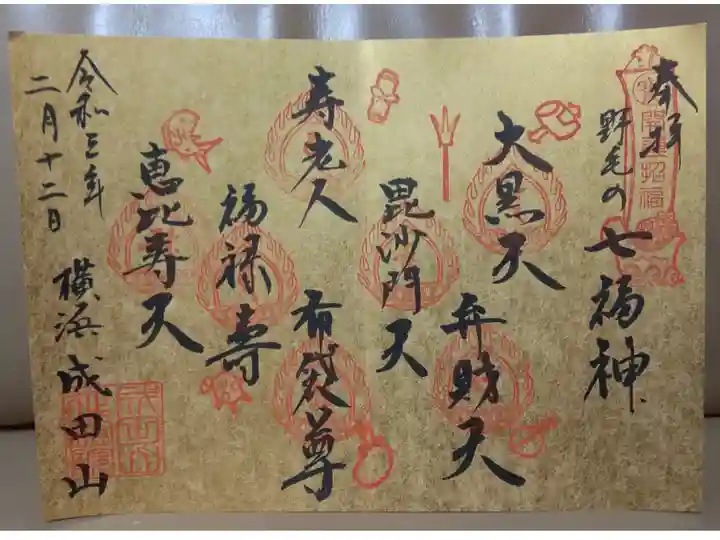 奉拝
開運招福
野毛の七福神
大黒天
弁財天
毘沙門天
寿老人
布袋尊
福禄壽
恵比寿天
横浜成田山
令和三年
二月十二日